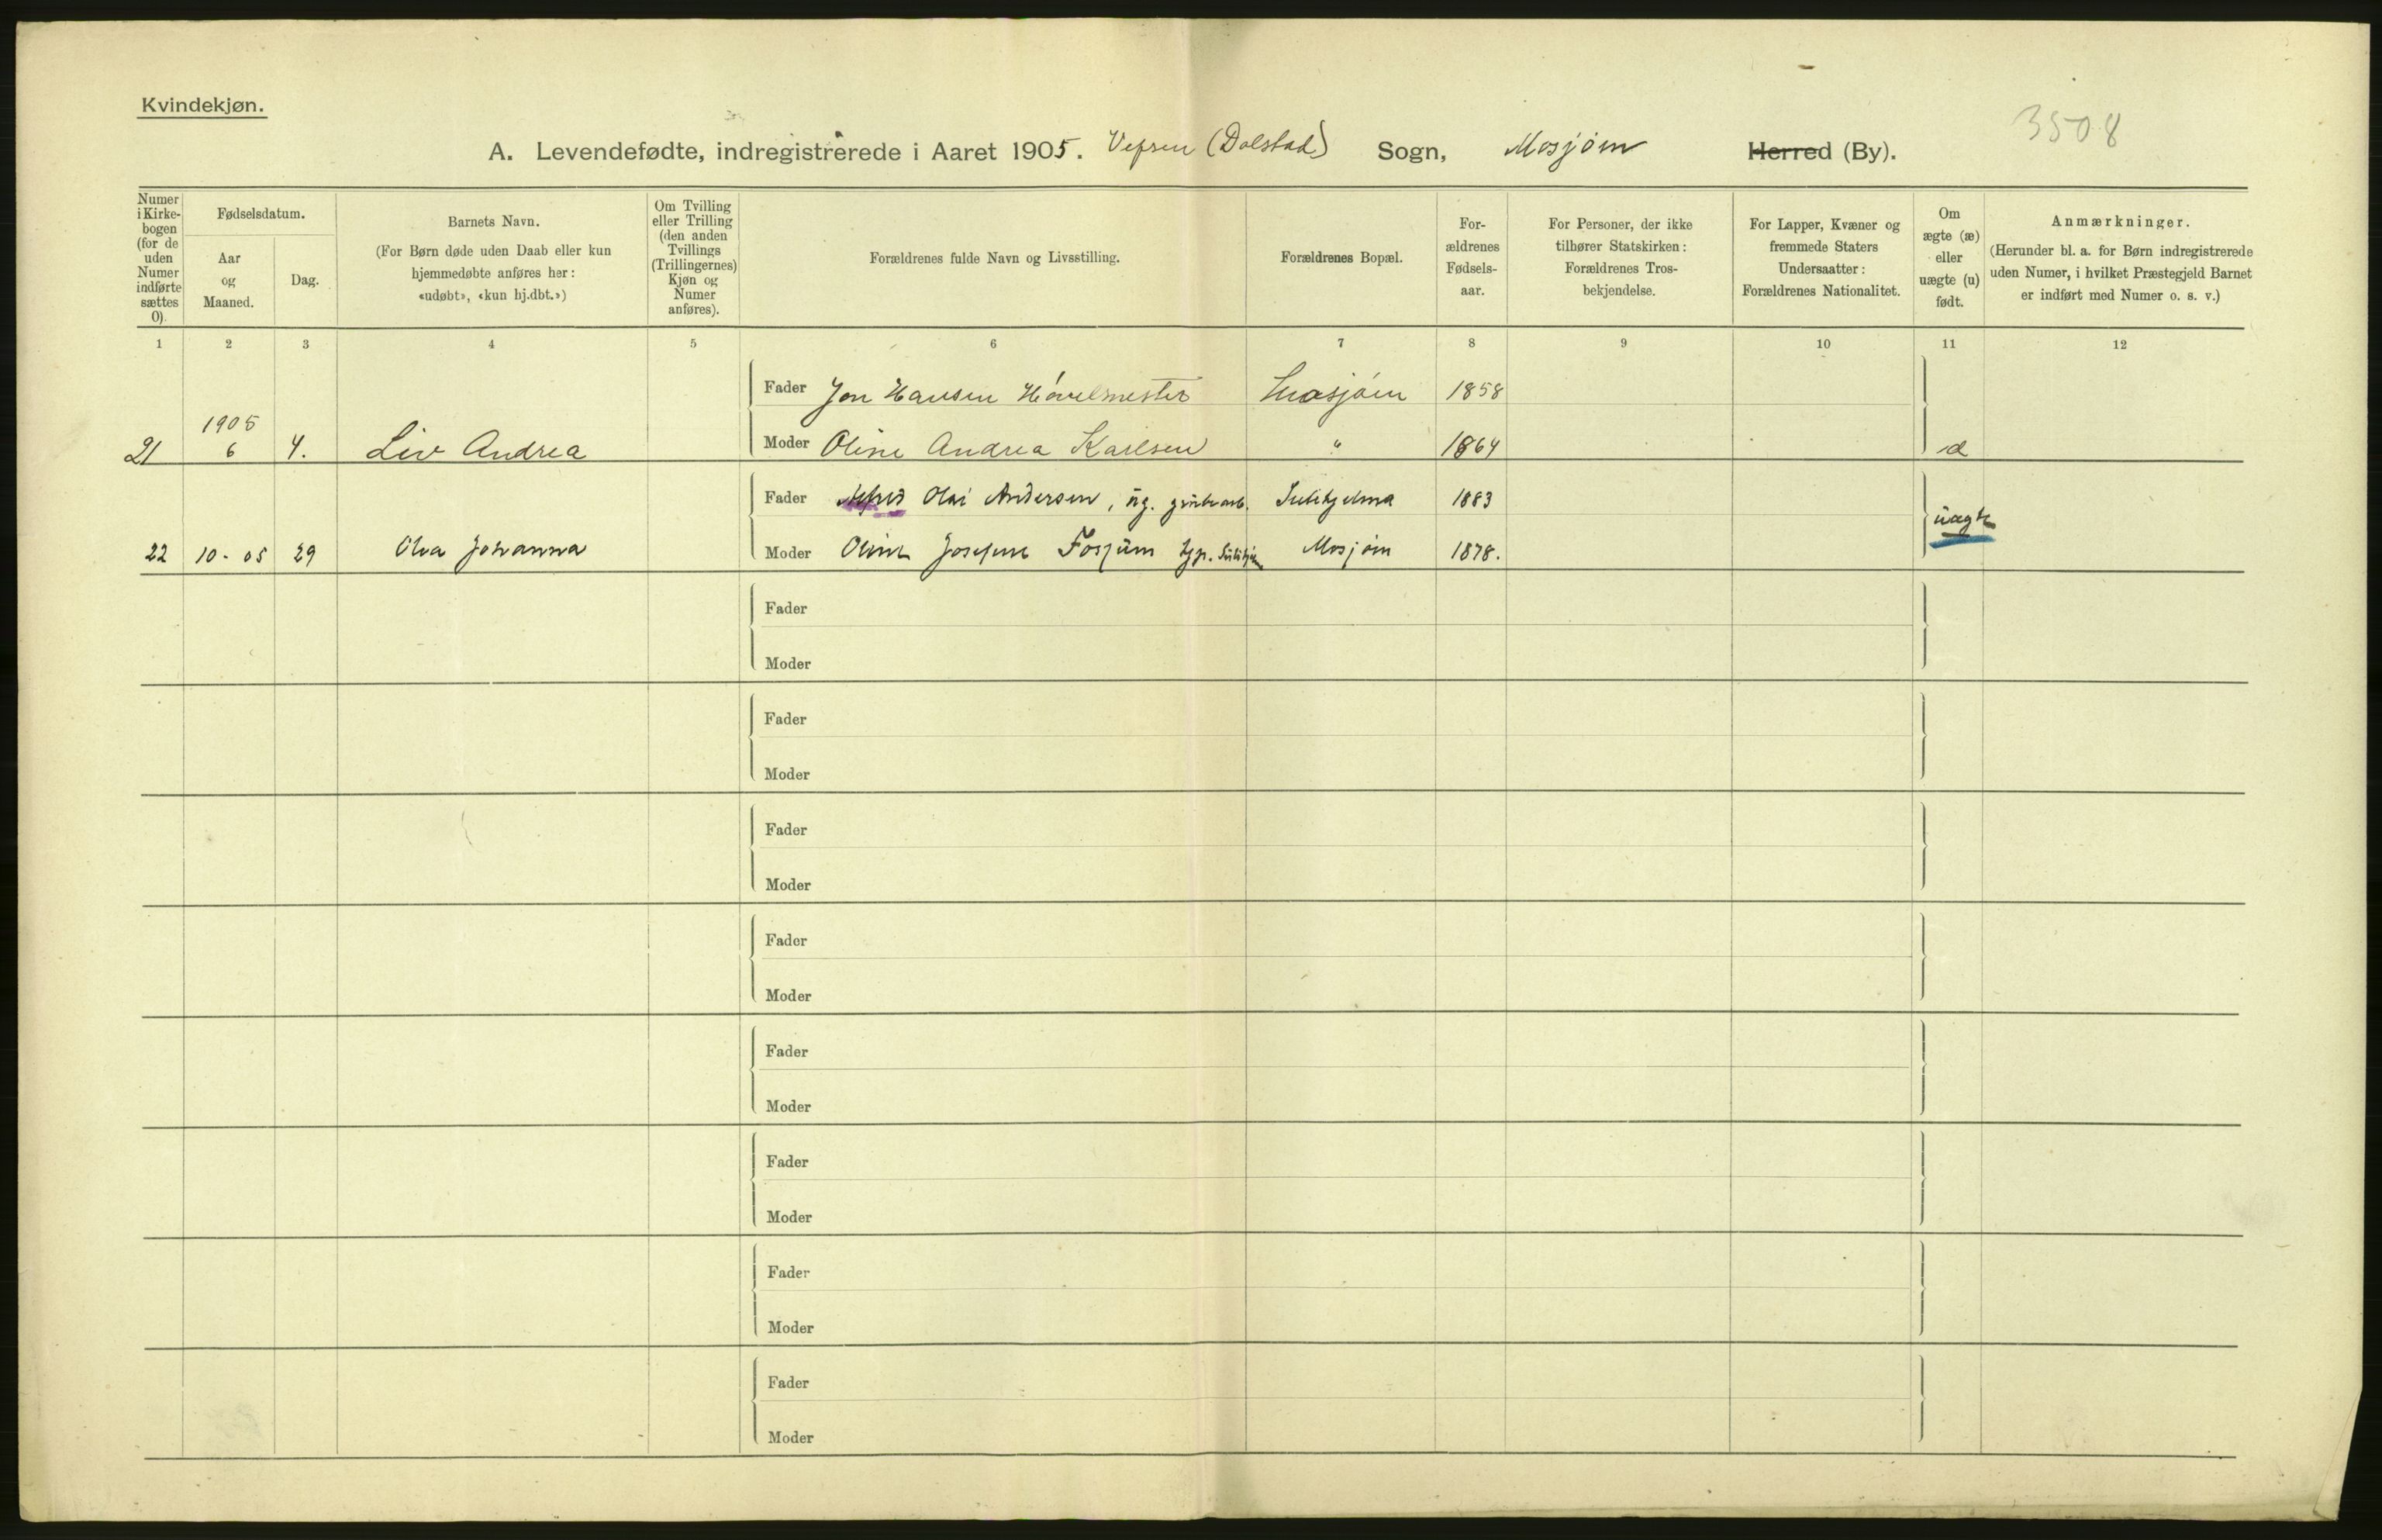 Kvindekjøn.
3508
A. Levendefødte, indregistrerede i Aaret 1905. Vefsen (Dolstad) Sogn, Mosjøen Herred (By).
Numer i Kirkebogen (for de uden Numer indførte sættes 0).
Fødselsdatum.
Aar og Maaned.
Dag.
Barnets Navn.
(For Børn døde uden Daab eller kun hjemmedøbte anføres her: «udøbt», «kun hj.dbt.»)
Om Tvilling eller Trilling (den anden Tvillings (Trillingernes) Kjøn og Numer anføres).
Forældrenes fulde Navn og Livsstilling.
Forældrenes Bopæl.
Forældrenes Fødselsaar.
For Personer, der ikke tilhører Statskirken: Forældrenes Trosbekjendelse.
For Lapper, Kvæner og fremmede Staters Undersaatter: Forældrenes Nationalitet.
Om ægte (æ) eller uægte (u) født.
Anmærkninger.
(Herunder bl. a. for Børn indregistrerede uden Numer, i hvilket Præstegjeld Barnet er indført med Numer o. s. v.)
1 2 3 4 5 6 7 8 9 10 11 12
Fader Jon Hansen Høvelmester Mosjøen 1858
21 1905 6 4. Liv Andrea Moder Oline Andrea Karlsen " 1864 æ
Fader Alfred Olai Andersen, ug. grubearb. Sulitjelma 1883 uægte
22 10-05 29 Olva Johanna Moder Oline Josefine Fosjum Mosjøen 1878.
Fader
Moder
Fader
Moder
Fader
Moder
Fader
Moder
Fader
Moder
Fader
Moder
Fader
Moder
Fader
Moder